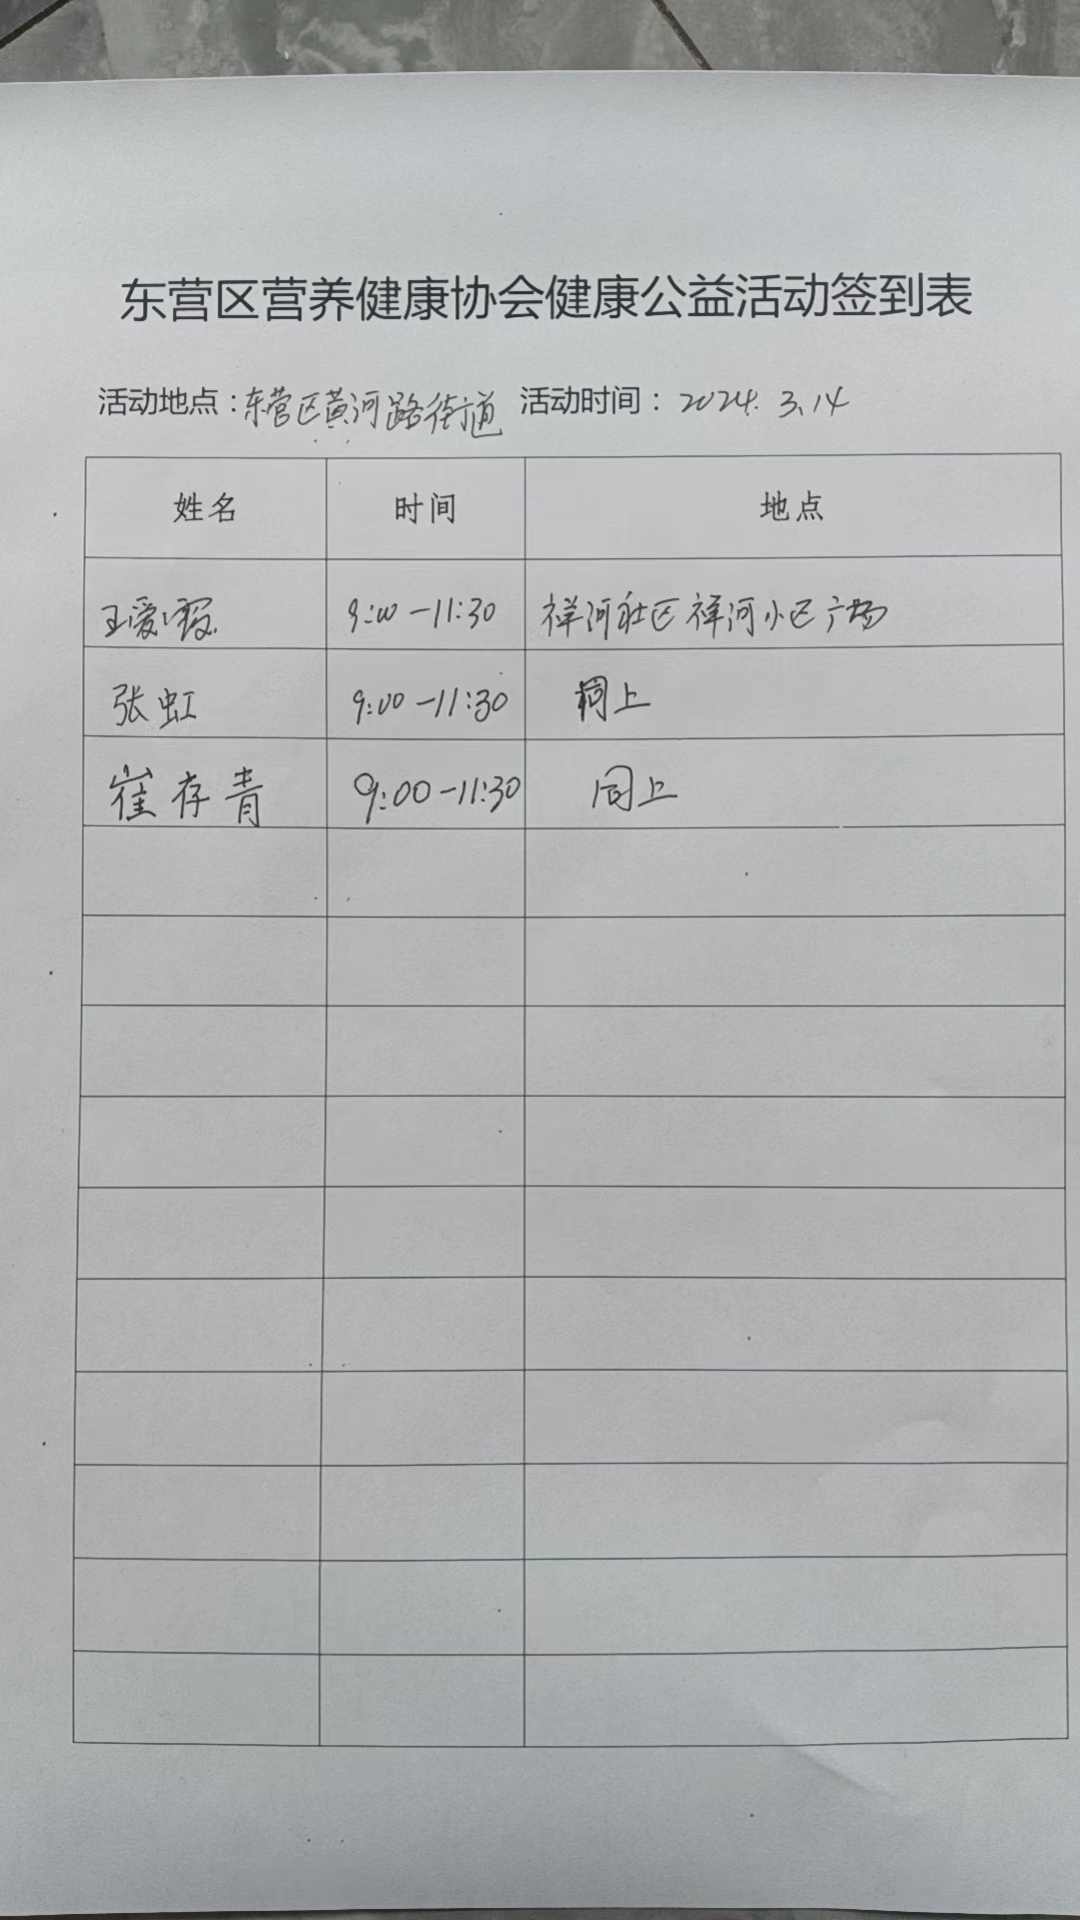 东营区营养健康协会健康公益活动签到表
活动地点：东营区黄河路街道 活动时间：2024.3.14
姓名 时间 地点
王爱霞 9:00-11:30 祥河社区祥河小区广场
张虹 9:00-11:30 同上
崔存青 9:00-11:30 同上